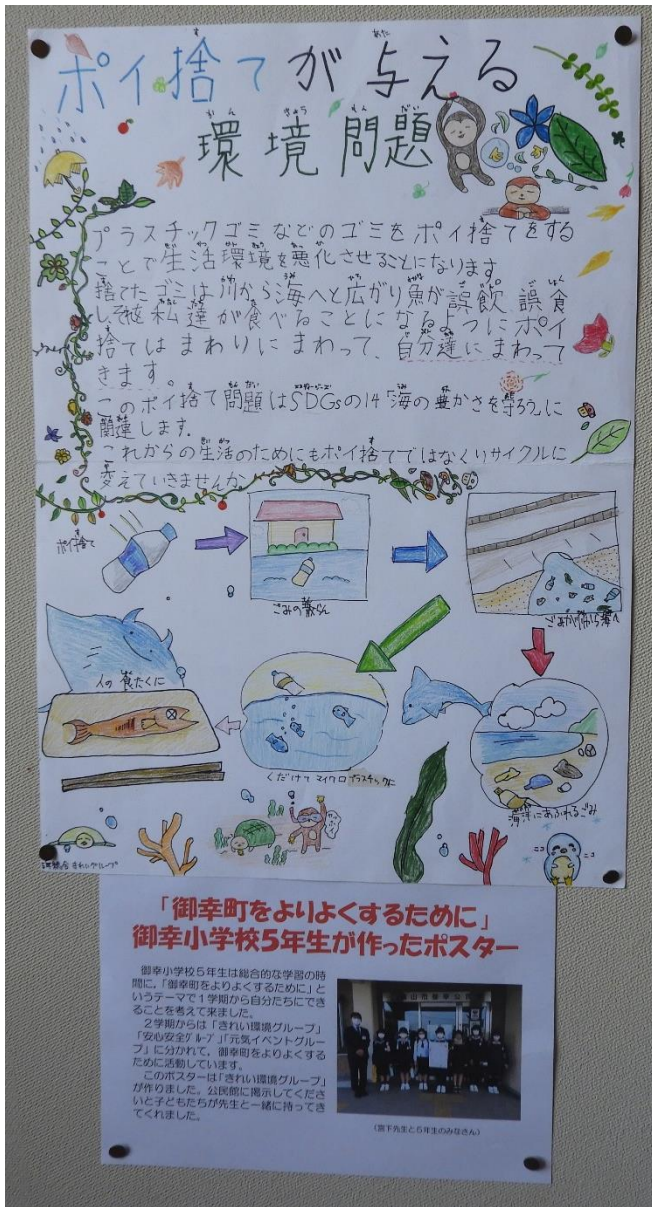 ポイ捨てが与える
環境問題
プラスチックゴミなどのゴミをポイ捨てをする
ことで生活環境を悪化させることになります
捨てたゴミは川から海へと広がり魚が誤飲、誤食
しそれを私達が食べることになるようにポイ
捨てはまわりにまわって、自分達にまわって
きます。
このポイ捨て問題はSDGsの14「海の豊かさを守ろう」に
関連します.
これからの生活のためにもポイ捨てではなくリサイクルに
変えていきませんか
ポイ捨て
ごみの散らん
ごみが川から海へ
人の食たくに
くだけてマイクロプラスチックに
海洋にあふれるごみ
ニコ
ニコ
「御幸町をよりよくするために」
御幸小学校5年生が作ったポスター
御幸小学校5年生は総合的な学習の時
間に,「御幸町をよりよくするために」と
いうテーマで1学期から自分たちにでき
ることを考えて来ました。
2学期からは「きれい環境グループ」
「安心安全グループ」「元気イベントグルー
プ」に分かれて,御幸町をよりよくする
ために活動しています。
このポスターは「きれい環境グループ」
が作りました。公民館に掲示してくださ
いと子どもたちが先生と一緒に持ってき
てくれました。
(宮下先生と5年生のみなさん)